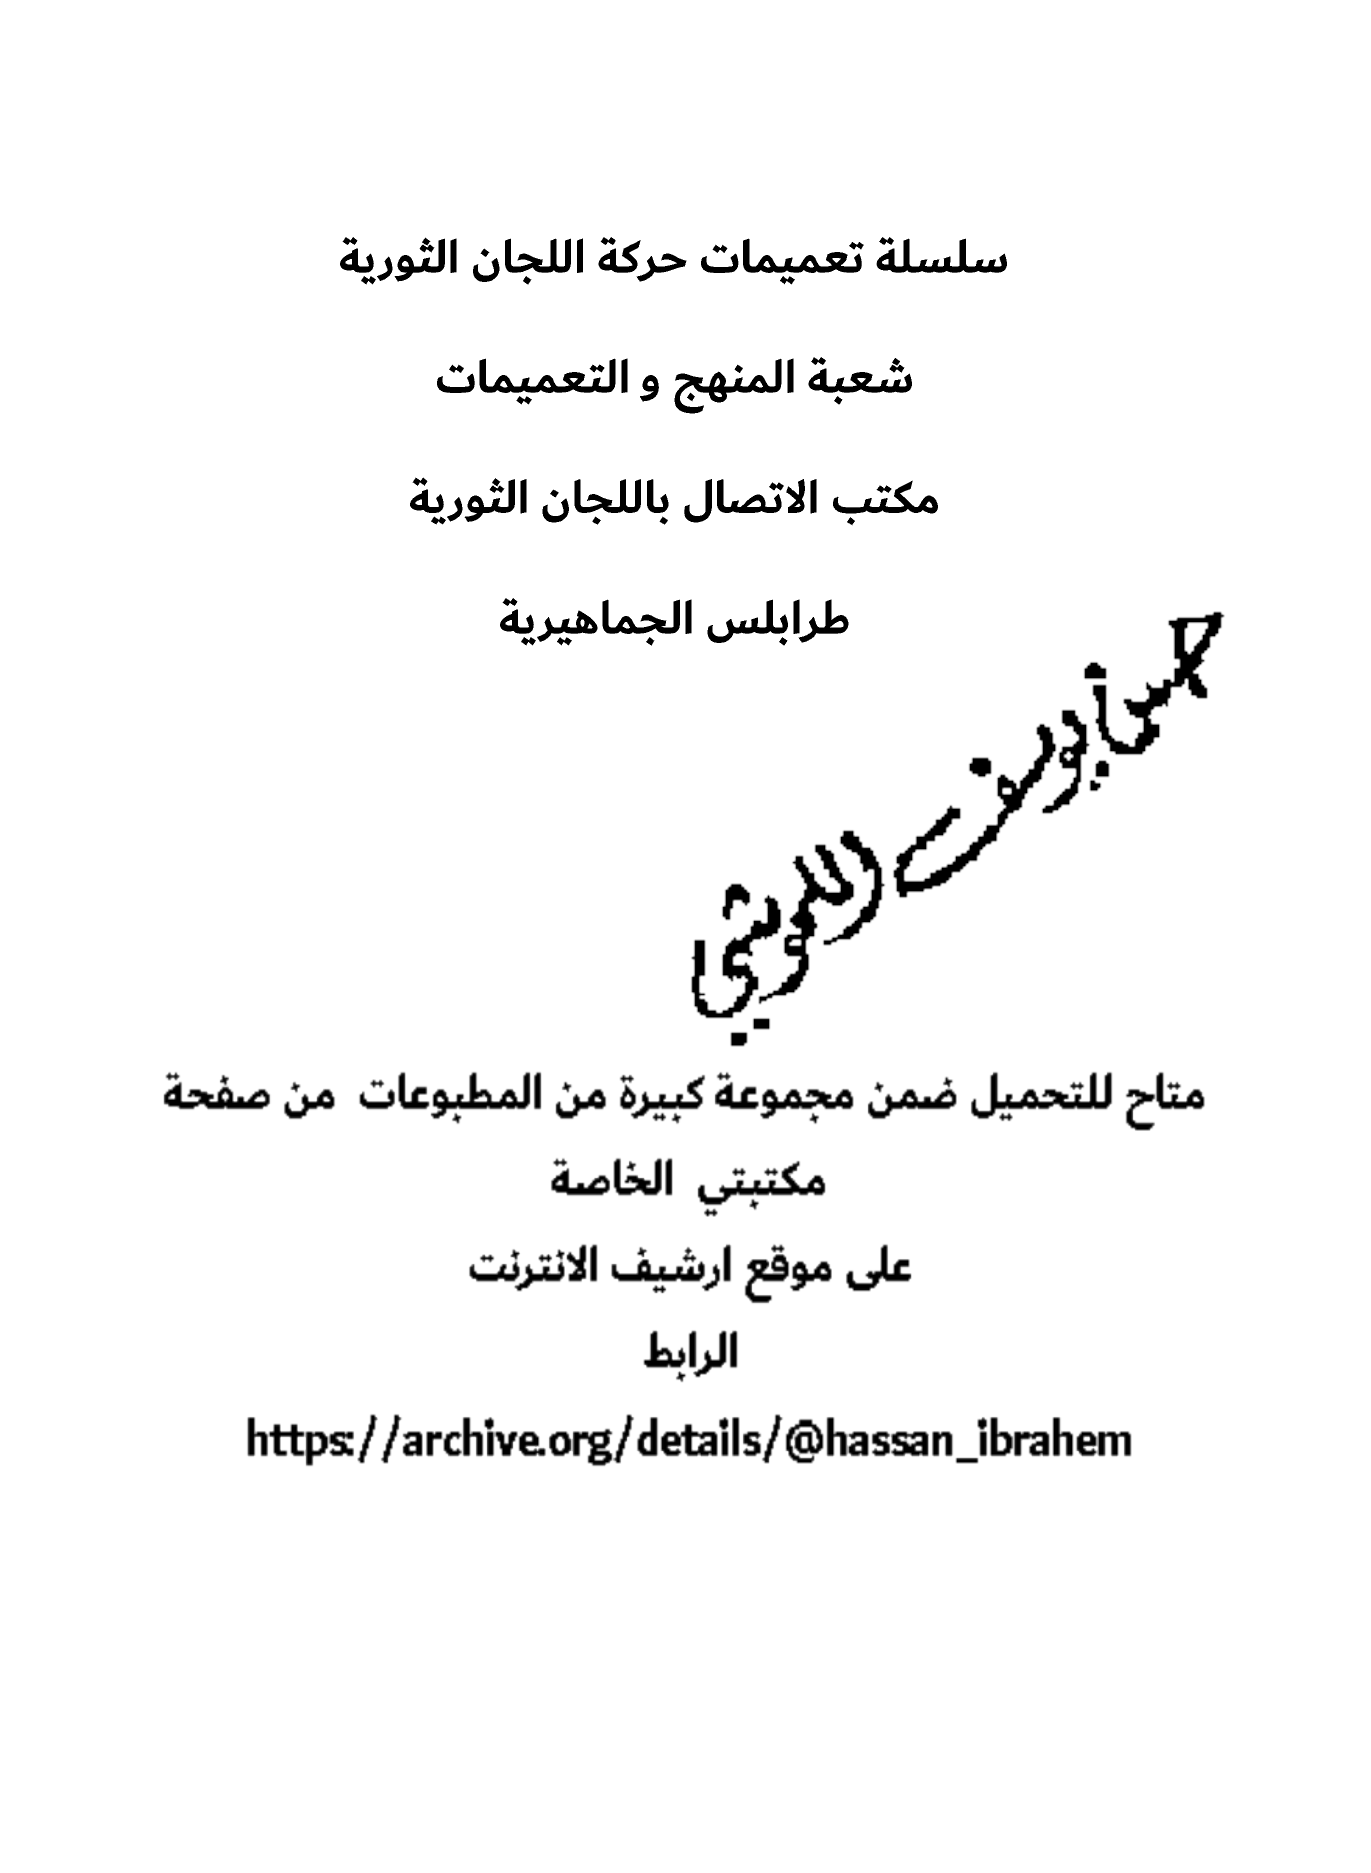 سلسلة تعميمات حركة اللجان الثورية
شعبة المنهج و التعميمات
مكتب الاتصال باللجان الثورية
طرابلس الجماهيرية
متاح للتحميل ضمن مجموعة كبيرة من المطبوعات من صفحة
مكتبتي الخاصة
على موقع ارشيف الانترنت
الرابط
https://archive.org/details/@hassan_ibrahem